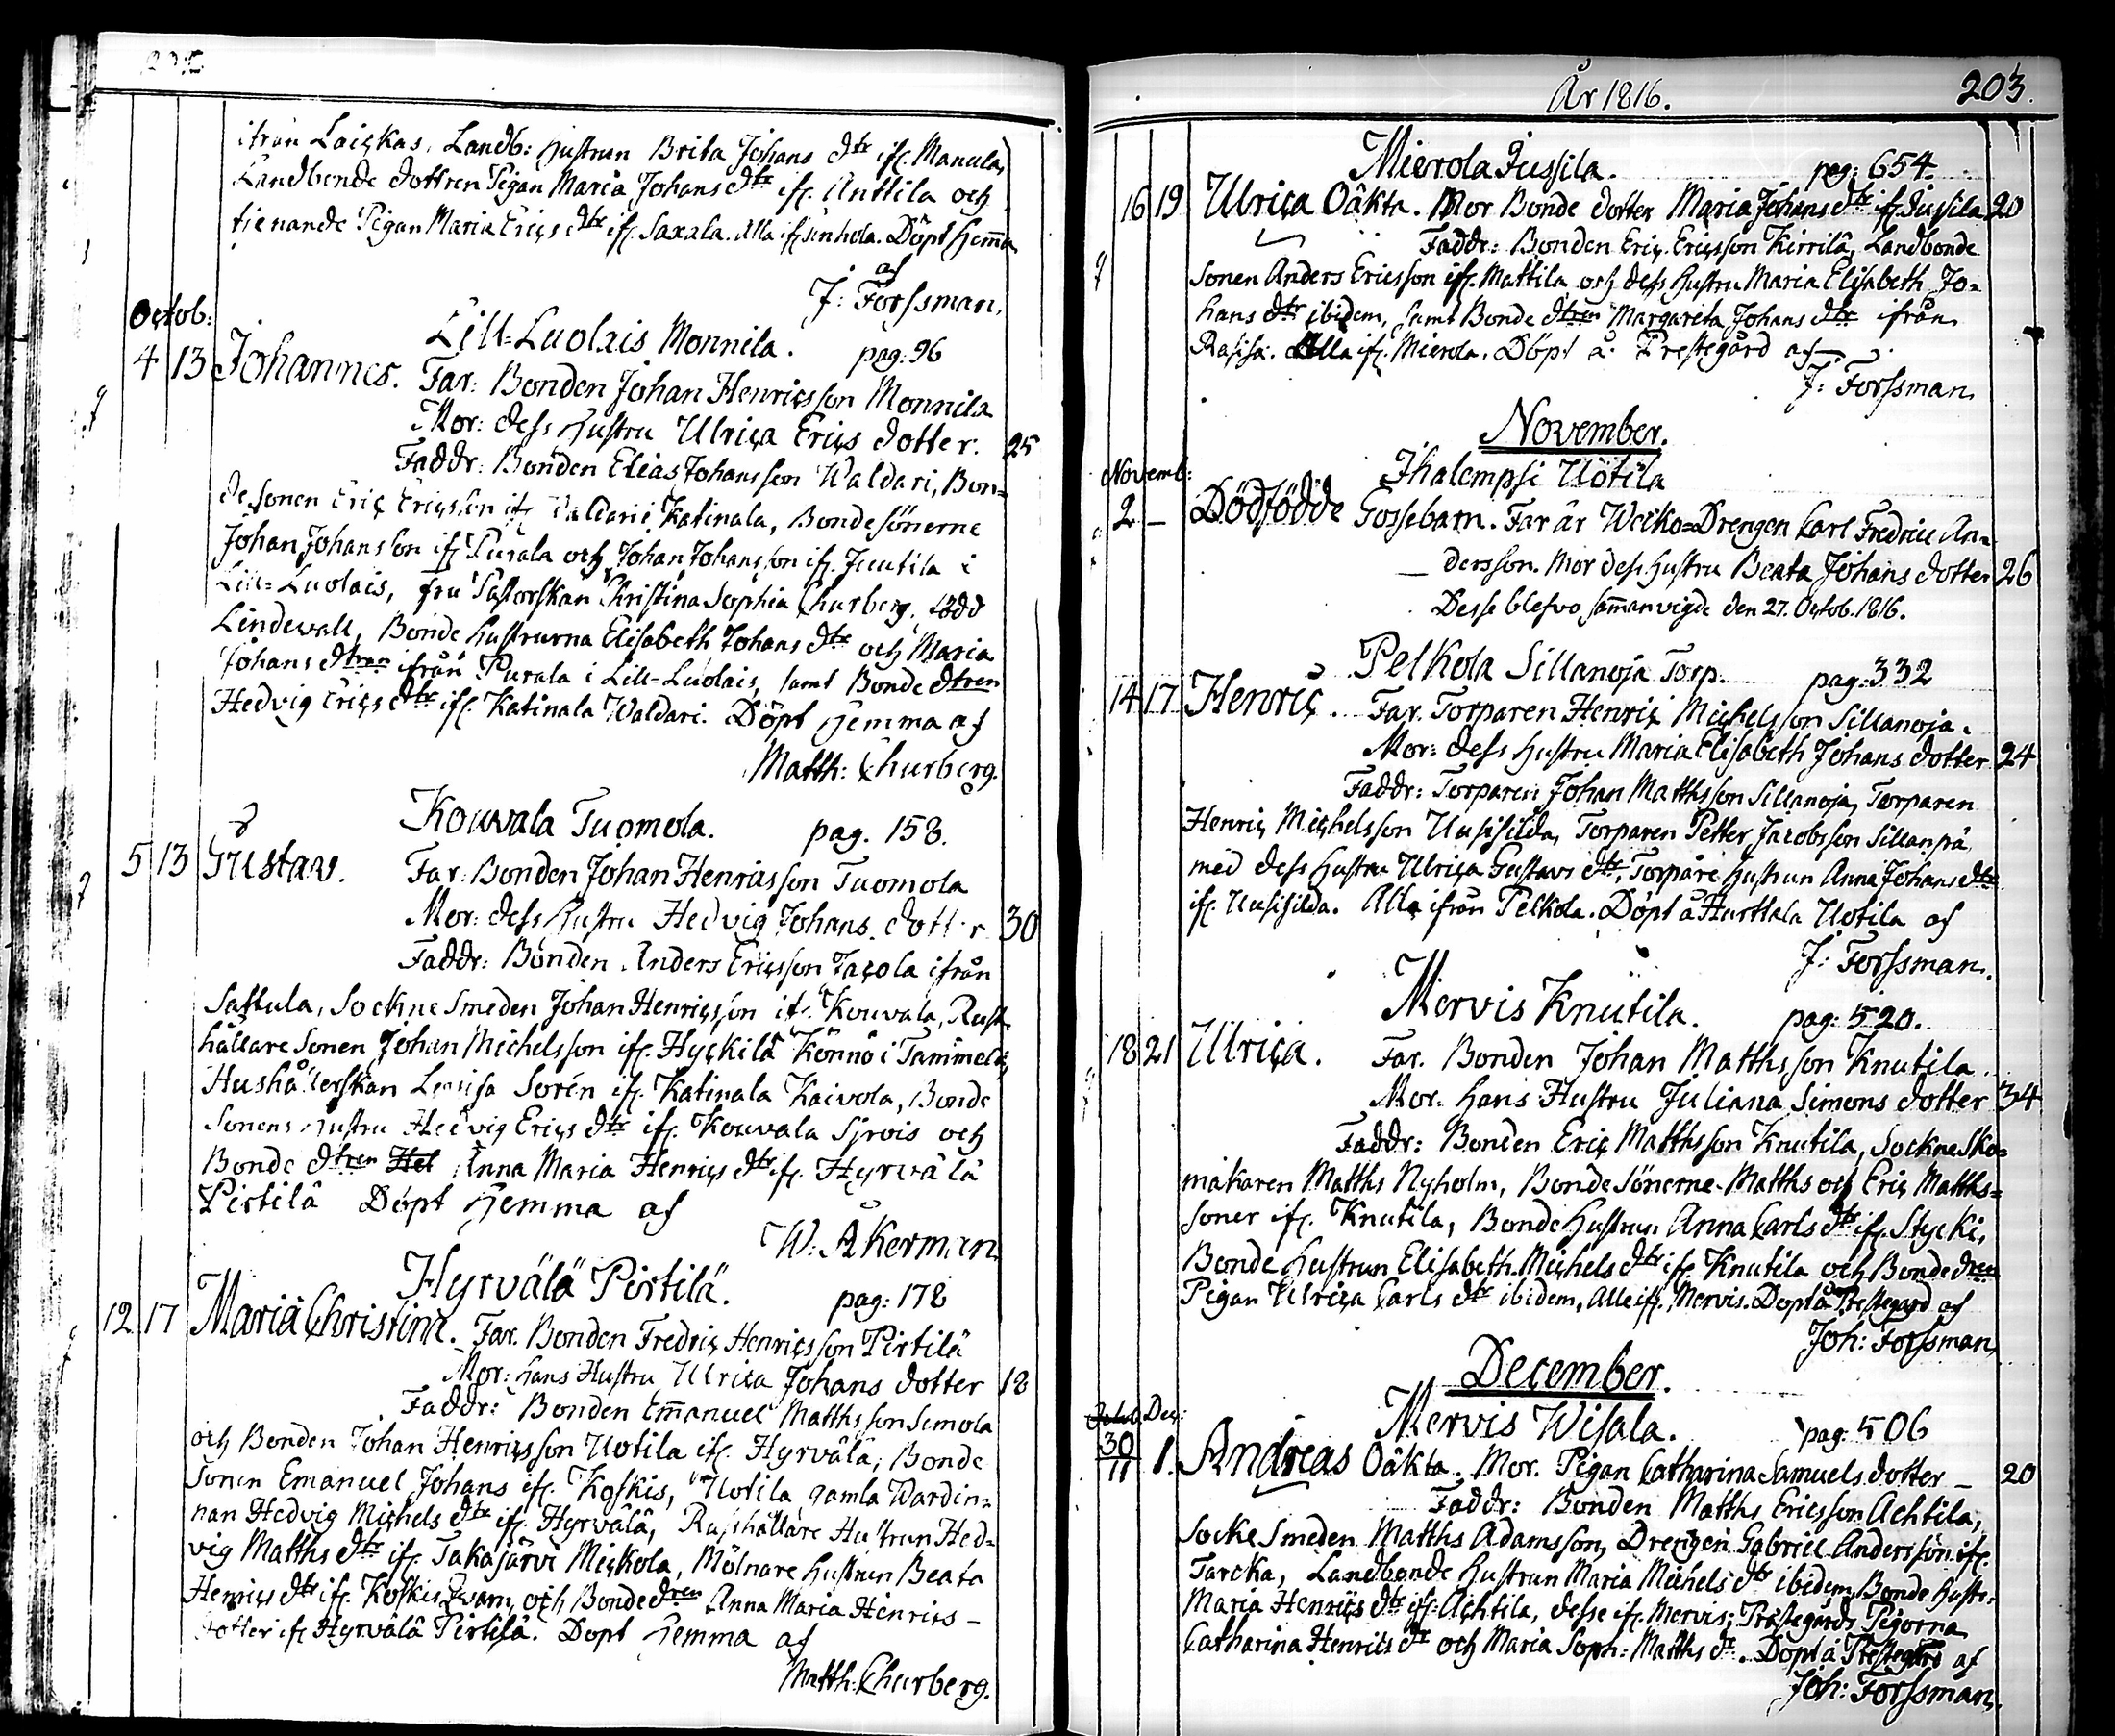 ifrån Laickas, Landb: Hustrun Brita Johans dtr ifr. Manula,
Landbonde dottren Pigan Maria Johans dtr ifr. Anttila och
tienande Pigan Maria Erics dtr ifr. Saxala. Alla ifr Sinhola. Döpt Hemma
af
J: Forssman.
Octob:
Lill=Luolais Monnila. pag: 96
4 13 Johannes. Far: Bonden Johan Henricsson Monnila
Mor: dess Hustru Ulrica Erics dotter. 25
Faddr: Bonden Elias Johansson Waldari, Bon=
de sonen Eric Ericsson ifr Waldari i Katinala, Bondesönerne
Johan Johansson ifr Purala och Johan Johansson ifr. Juutila i
Lill=Luolais, fru Pastorskan Christina Sophia Churberg, född
Lindewall, Bonde hustrurna Elisabeth Johans dtr och Maria
Johans dtran ifrån Purala i Lill=Luolais, samt Bonde dtren
Hedvig Erics dtr ifr. Katinala Waldari. Döpt Hemma af
Matth: Churberg.
Kouvala Tuomola. pag. 158.
5 13 Gustav. Far: Bonden Johan Henricsson Tuomola
Mor: dess Hustru Hedvig Johans dotter 30
Faddr: Bonden Anders Ericsson Jacola ifrån
Sattula, Sockne Smeden Johan Henricsson ifr. Kouvala, Rust=
hållare Sonen Johan Michelsson ifr. Hyckilä Könnö i Tammela,
Hushållerskan Lovisa Sorén ifr. Katinala Kaivola, Bonde
Sonens Hustru Hedvig Erics dtr ifr. Kouvala Sjrois och
Bonde dtren Hel Anna Maria Henrics dtr ifr. Hyrvälä
Pirtilä Döpt Hemma af
W: Åkerman.
Hyrvälä Pirtilä. pag: 178
12 17 Maria Christina. Far. Bonden Fredric Henricsson Pirtilä
Mor: hans Hustru Ulrica Johans dotter 18
Faddr: Bonden Emanuel Matthsson Simola
och Bonden Johan Henricsson Uotila ifr. Hyrvälä, Bonde
Sonen Emanuel Johans ifr. Koskis, Uotila gamla Wärdin=
nan Hedvig Michels dtr ifr. Hyrvälä, Rusthållare Hustrun Hed=
vig Matths dtr ifr. Takajärvi Mickola, Mölnare hustrun Beata
Henrics dtr ifr. Koskis Qvarn, och Bonde dren Anna Maria Henrics -
dotter ifr Hyrvälä Pirtilä. Döpt Hemma af
Matth: Churberg.
År 1816. 203.
Mierola Jussila. pag: 654.
16 19 Ulrica Oäkta. Mor Bonde dotter Maria Johans dtr ifr Jussila 20
Faddr: Bonden Eric Ericsson Kirrilä, Landbonde
Sonen Anders Ericsson ifr. Mattila och dess Hustru Maria Elisabeth Jo=
hans dtr ibidem, samt Bonde dtren Margareta Johans dtr ifrån
Rasisa. Alla ifr. Mierola. Döpt å Prestegård af
J: Forssman.
November.
Novemb: Ihalempsi Uotila
2 - Dödfödde Gossebarn. Far är Weiko=Drengen Carl Fredric An=
dersson. Mor dess Hustru Beata Johans dotter 26
Desse blefvo sammanvigde den 27. Octob. 1816.
Pelkola Sillanoja Torp. pag: 332
14 17 Henric. Far. Torparen Henric Michelsson Sillanoja.
Mor: dess Hustru Maria Elisabeth Johans dotter 24
Faddr: Torparen Johan Matthsson Sillanoja, Torparen
Henric Michelsson Uusisilda, Torparen Petter Jacobsson Sillanpä
med dess Hustru Ulrica Gustavs dtr, Torpare hustrun Anna Johans dtr
ifr. Uusisilda. Alla ifrån Pelkola. Döpt å Hurttala Uotila af
J: Forssman.
Mervis Knutila. pag: 520.
18 21 Ulrica. Far. Bonden Johan Matthsson Knutila.
Mor. hans Hustru Juliana Simons dotter 34
Faddr: Bonden Eric Matthsson Knutila, Sockne Sko=
makaren Matths Nyholm, Bonde Sönerne Matths och Eric Matths=
söner ifr. Knutila, Bonde Hustrun Anna Carls dtr ifr. Stycki,
Bonde Hustrun Elisabeth Michels dtr ifr Knutila och Bonde dren
Pigan Ulrica Carls dtr ibidem, Alle ifr. Mervis. Döpt å Prestegård af
Joh: Forssman.
December.
Dec: Mervis Wisala. pag: 506
30/11 1. Andreas Oäkta. Mor. Pigan Catharina Samuels dotter - 20
Faddr: Bonden Matths Ericsson Achtila,
Socke Smeden Matths Adamsson, Drengen Gabriel Andersson ifr.
Tarcka, Landbonde Hustrun Maria Michels dtr ibidem, Bonde Hustr.
Maria Henrics dtr ifr. Achtila, desse ifr. Mervis; Prästegårds Pigorna
Catharina Henrics dtr och Maria Soph: Matths dr. Döpt å Prestegård af
Joh: Forssman.